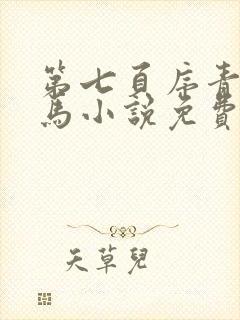 第七頁序青
馬小說免費
天草兒